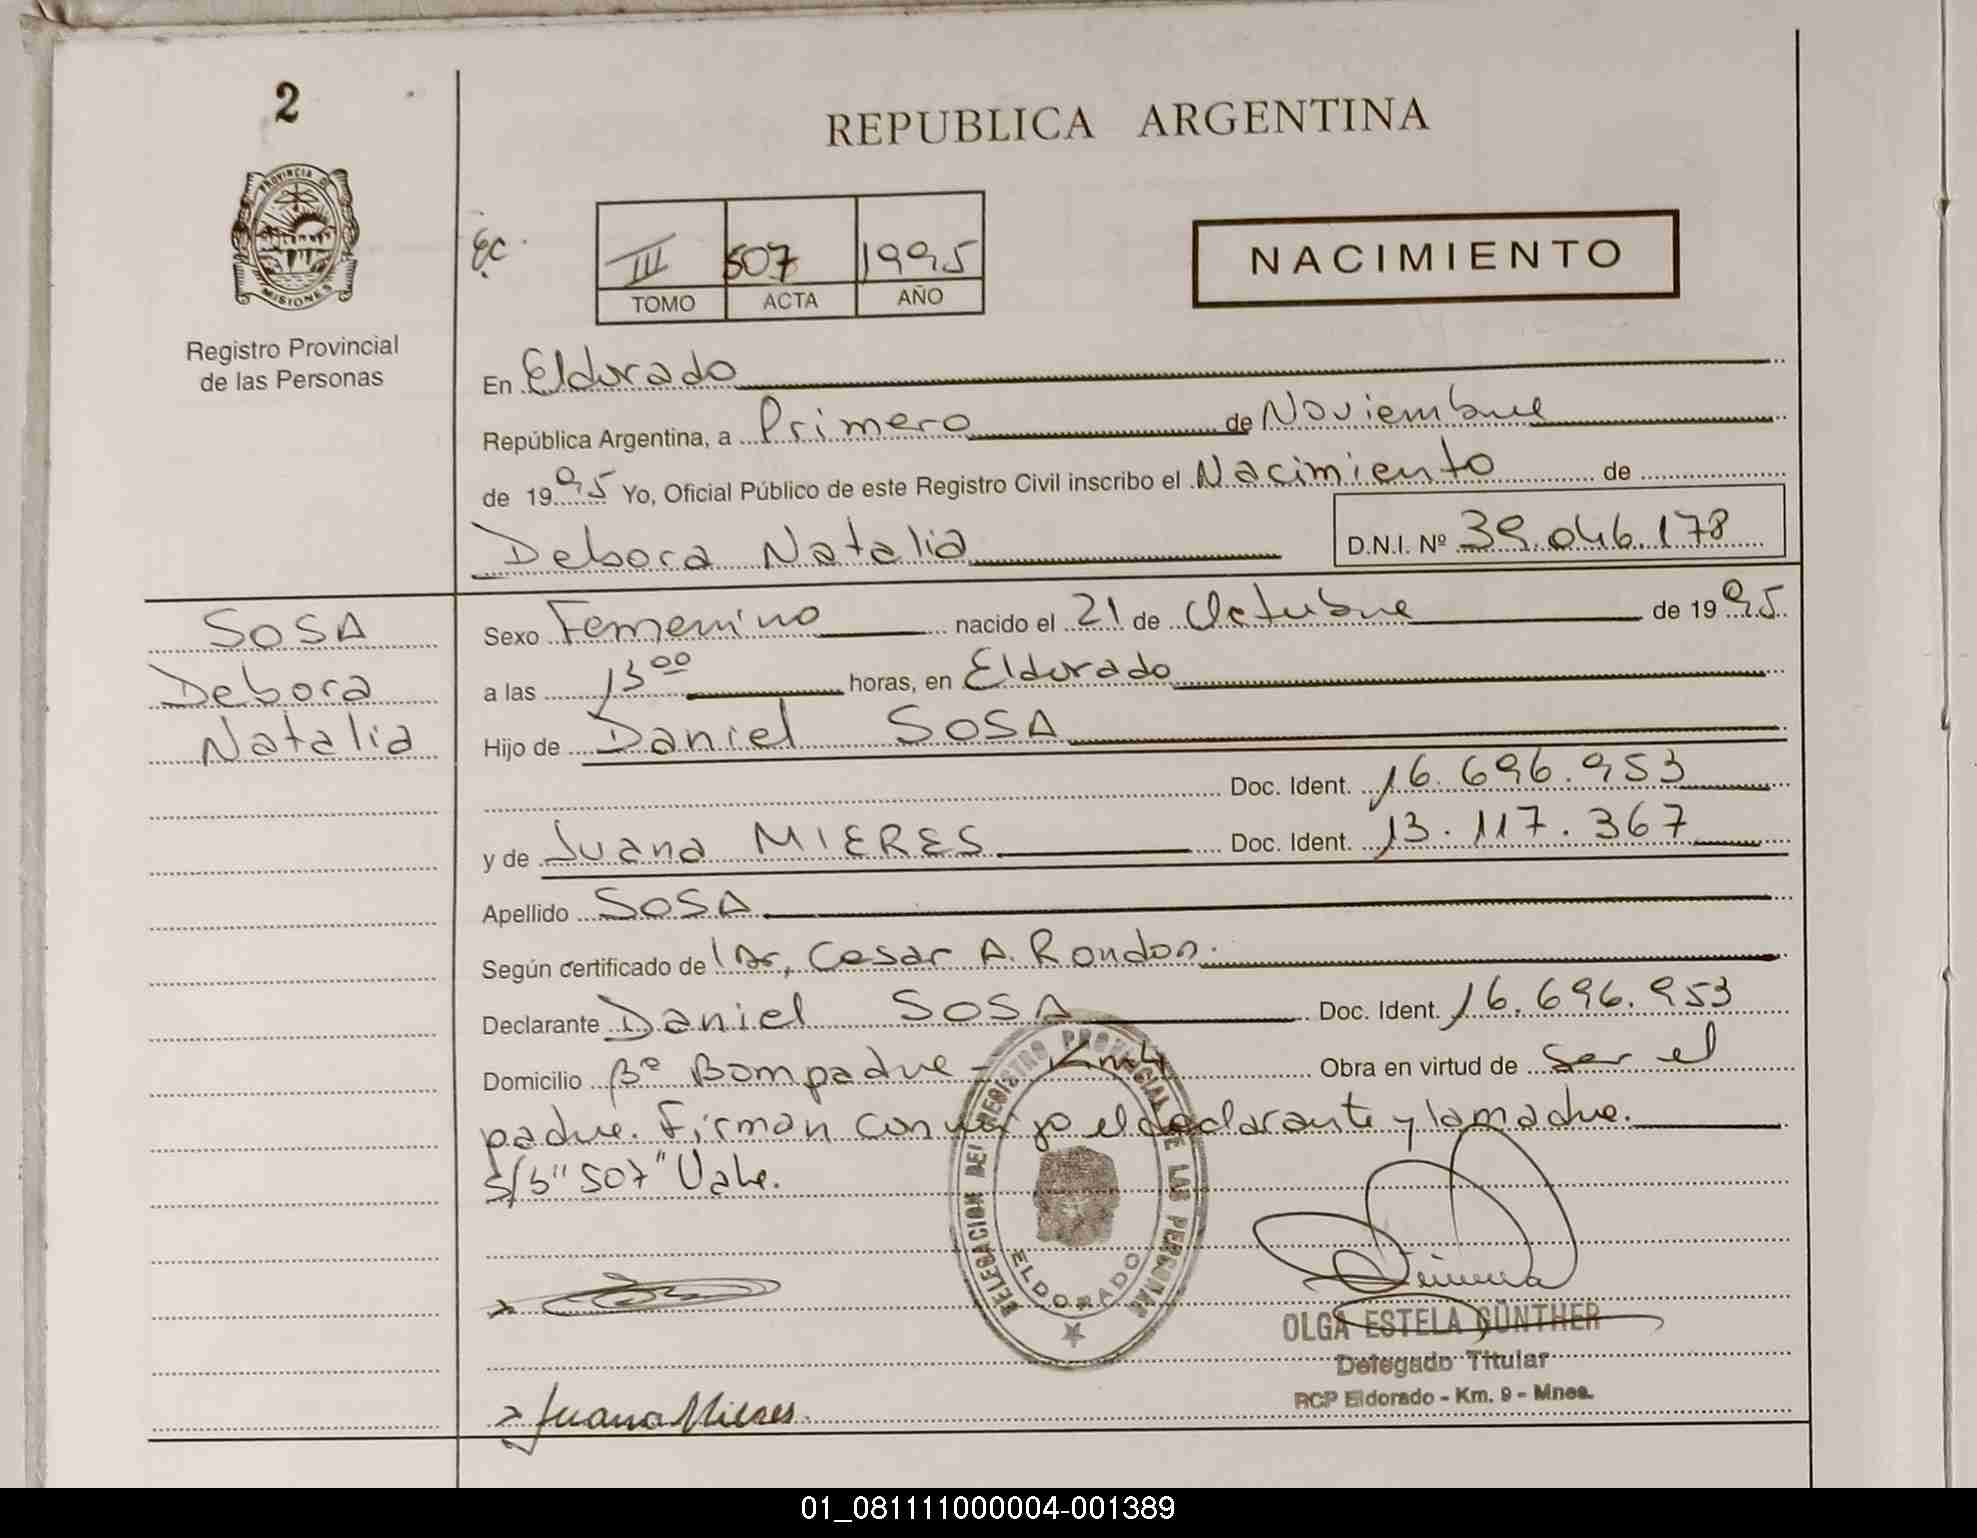 2
REPUBLICA ARGENTINA
PROVINCIA DE
MISIONES
Registro Provincial
de las Personas
Ec.
III 507 1995
TOMO ACTA AÑO
NACIMIENTO
En Eldorado
República Argentina, a Primero de Noviembre
de 1995 Yo, Oficial Público de este Registro Civil inscribo el Nacimiento de
Debora Natalia D.N.I. Nº 39.046.178
SOSA
Debora
Natalia
Sexo Femenino nacido el 21 de Octubre de 1995
a las 13 00 horas, en Eldorado
Hijo de Daniel SOSA
Doc. Ident. 16.696.953
y de Juana MIERES Doc. Ident. 13.117.367
Apellido SOSA
Según certificado de Dr, Cesar A. Rondon.
Declarante Daniel SOSA Doc. Ident. 16.696.953
Domicilio Bº Bompadre - Km4 Obra en virtud de ser el
padre. Firman conmigo el declarante y la madre.
S/b "507" Vale.
DELEGACION DEL REGISTRO PROVINCIAL DE LAS PERSONAS
ELDORADO
OLGA ESTELA GÜNTHER
Delegado Titular
RCP Eldorado - Km. 9 - Mnes.
Juana Mieres
01_081111000004-001389